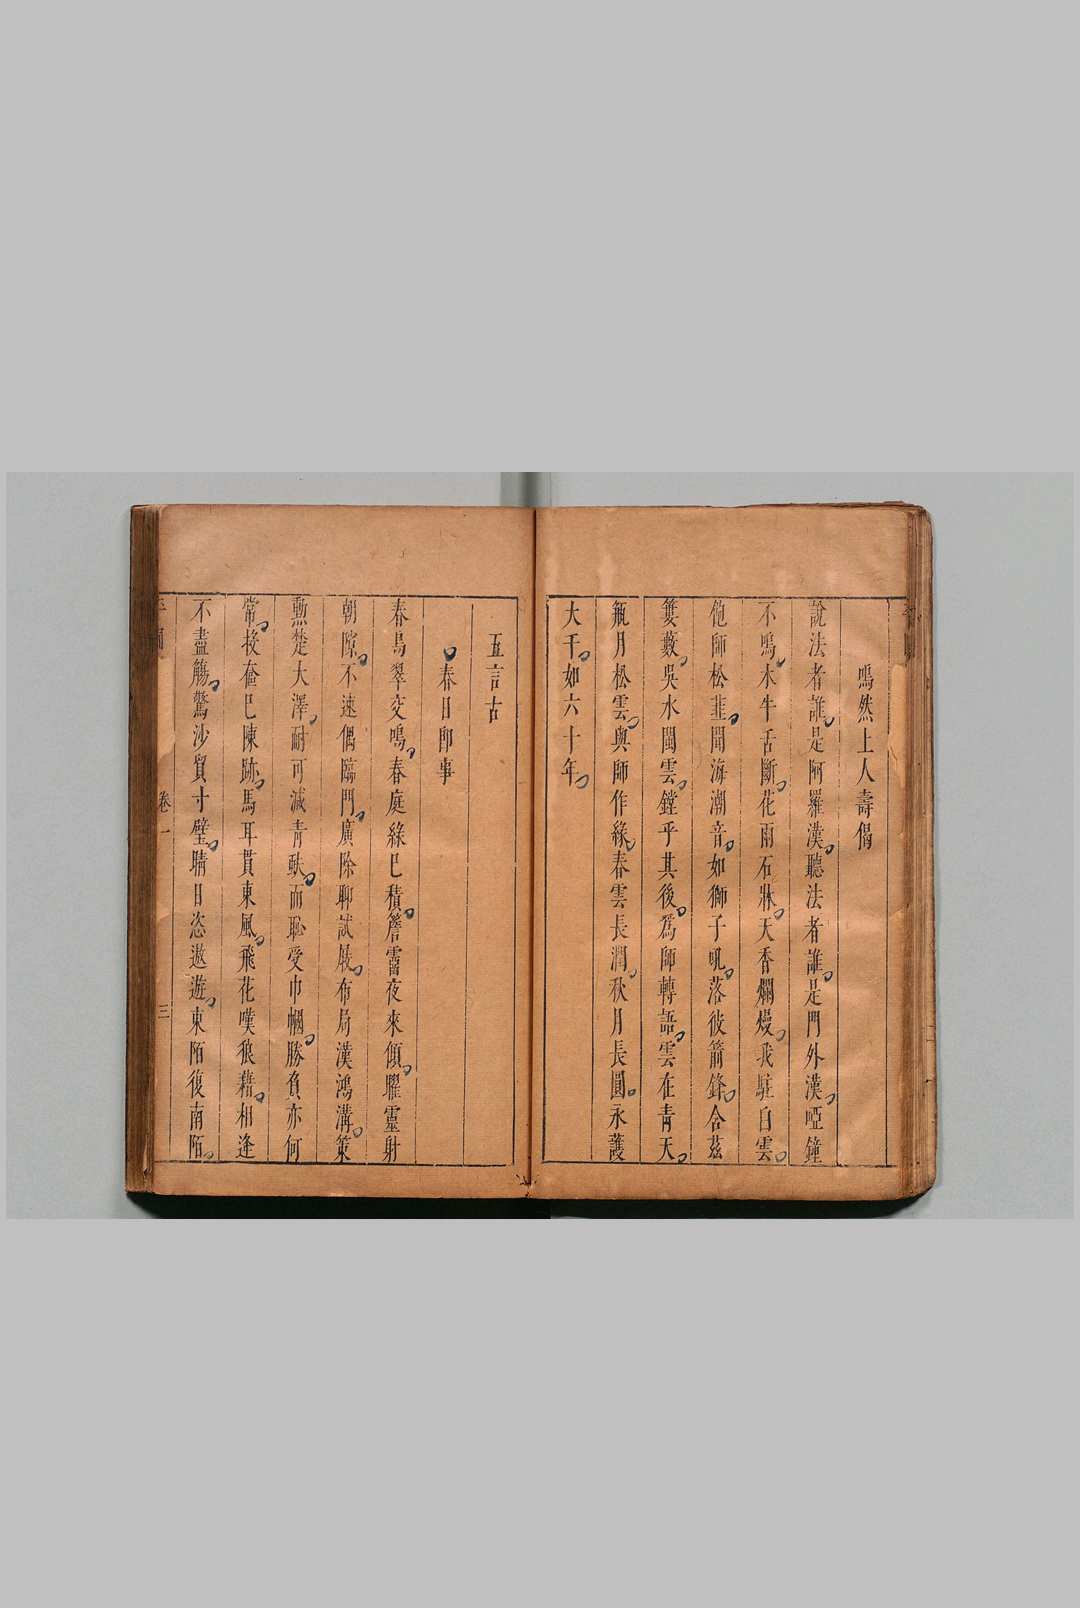 鳴然上人壽偈
說法者誰是阿羅漢聽法者誰是門外漢啞鐘
不鳴水牛舌斷花雨石牀天香爛熳我駐白雲
飽師松韮聞海潮音如獅子吼落彼箭鋒合茲
籆藪吳水閩雲鏜乎其後爲師轉語雲在青天
瓶月松雲與師作緣春雲長潤秋月長圓永護
大千如六十年
五言古
春日卽事
春鳥翠交鳴春庭綠已積簷霤夜來傾曜靈射
朝隙不速偶臨門廣除聊試屐布局漢鴻溝策
勲楚大澤耐可減青畝而恥受巾幗勝負亦何
常投奩已陳跡馬耳貫東風飛花嘆狼藉相逢
不盡觴驚沙貿寸璧晴日恣遨遊東陌復南陌
卷一
三